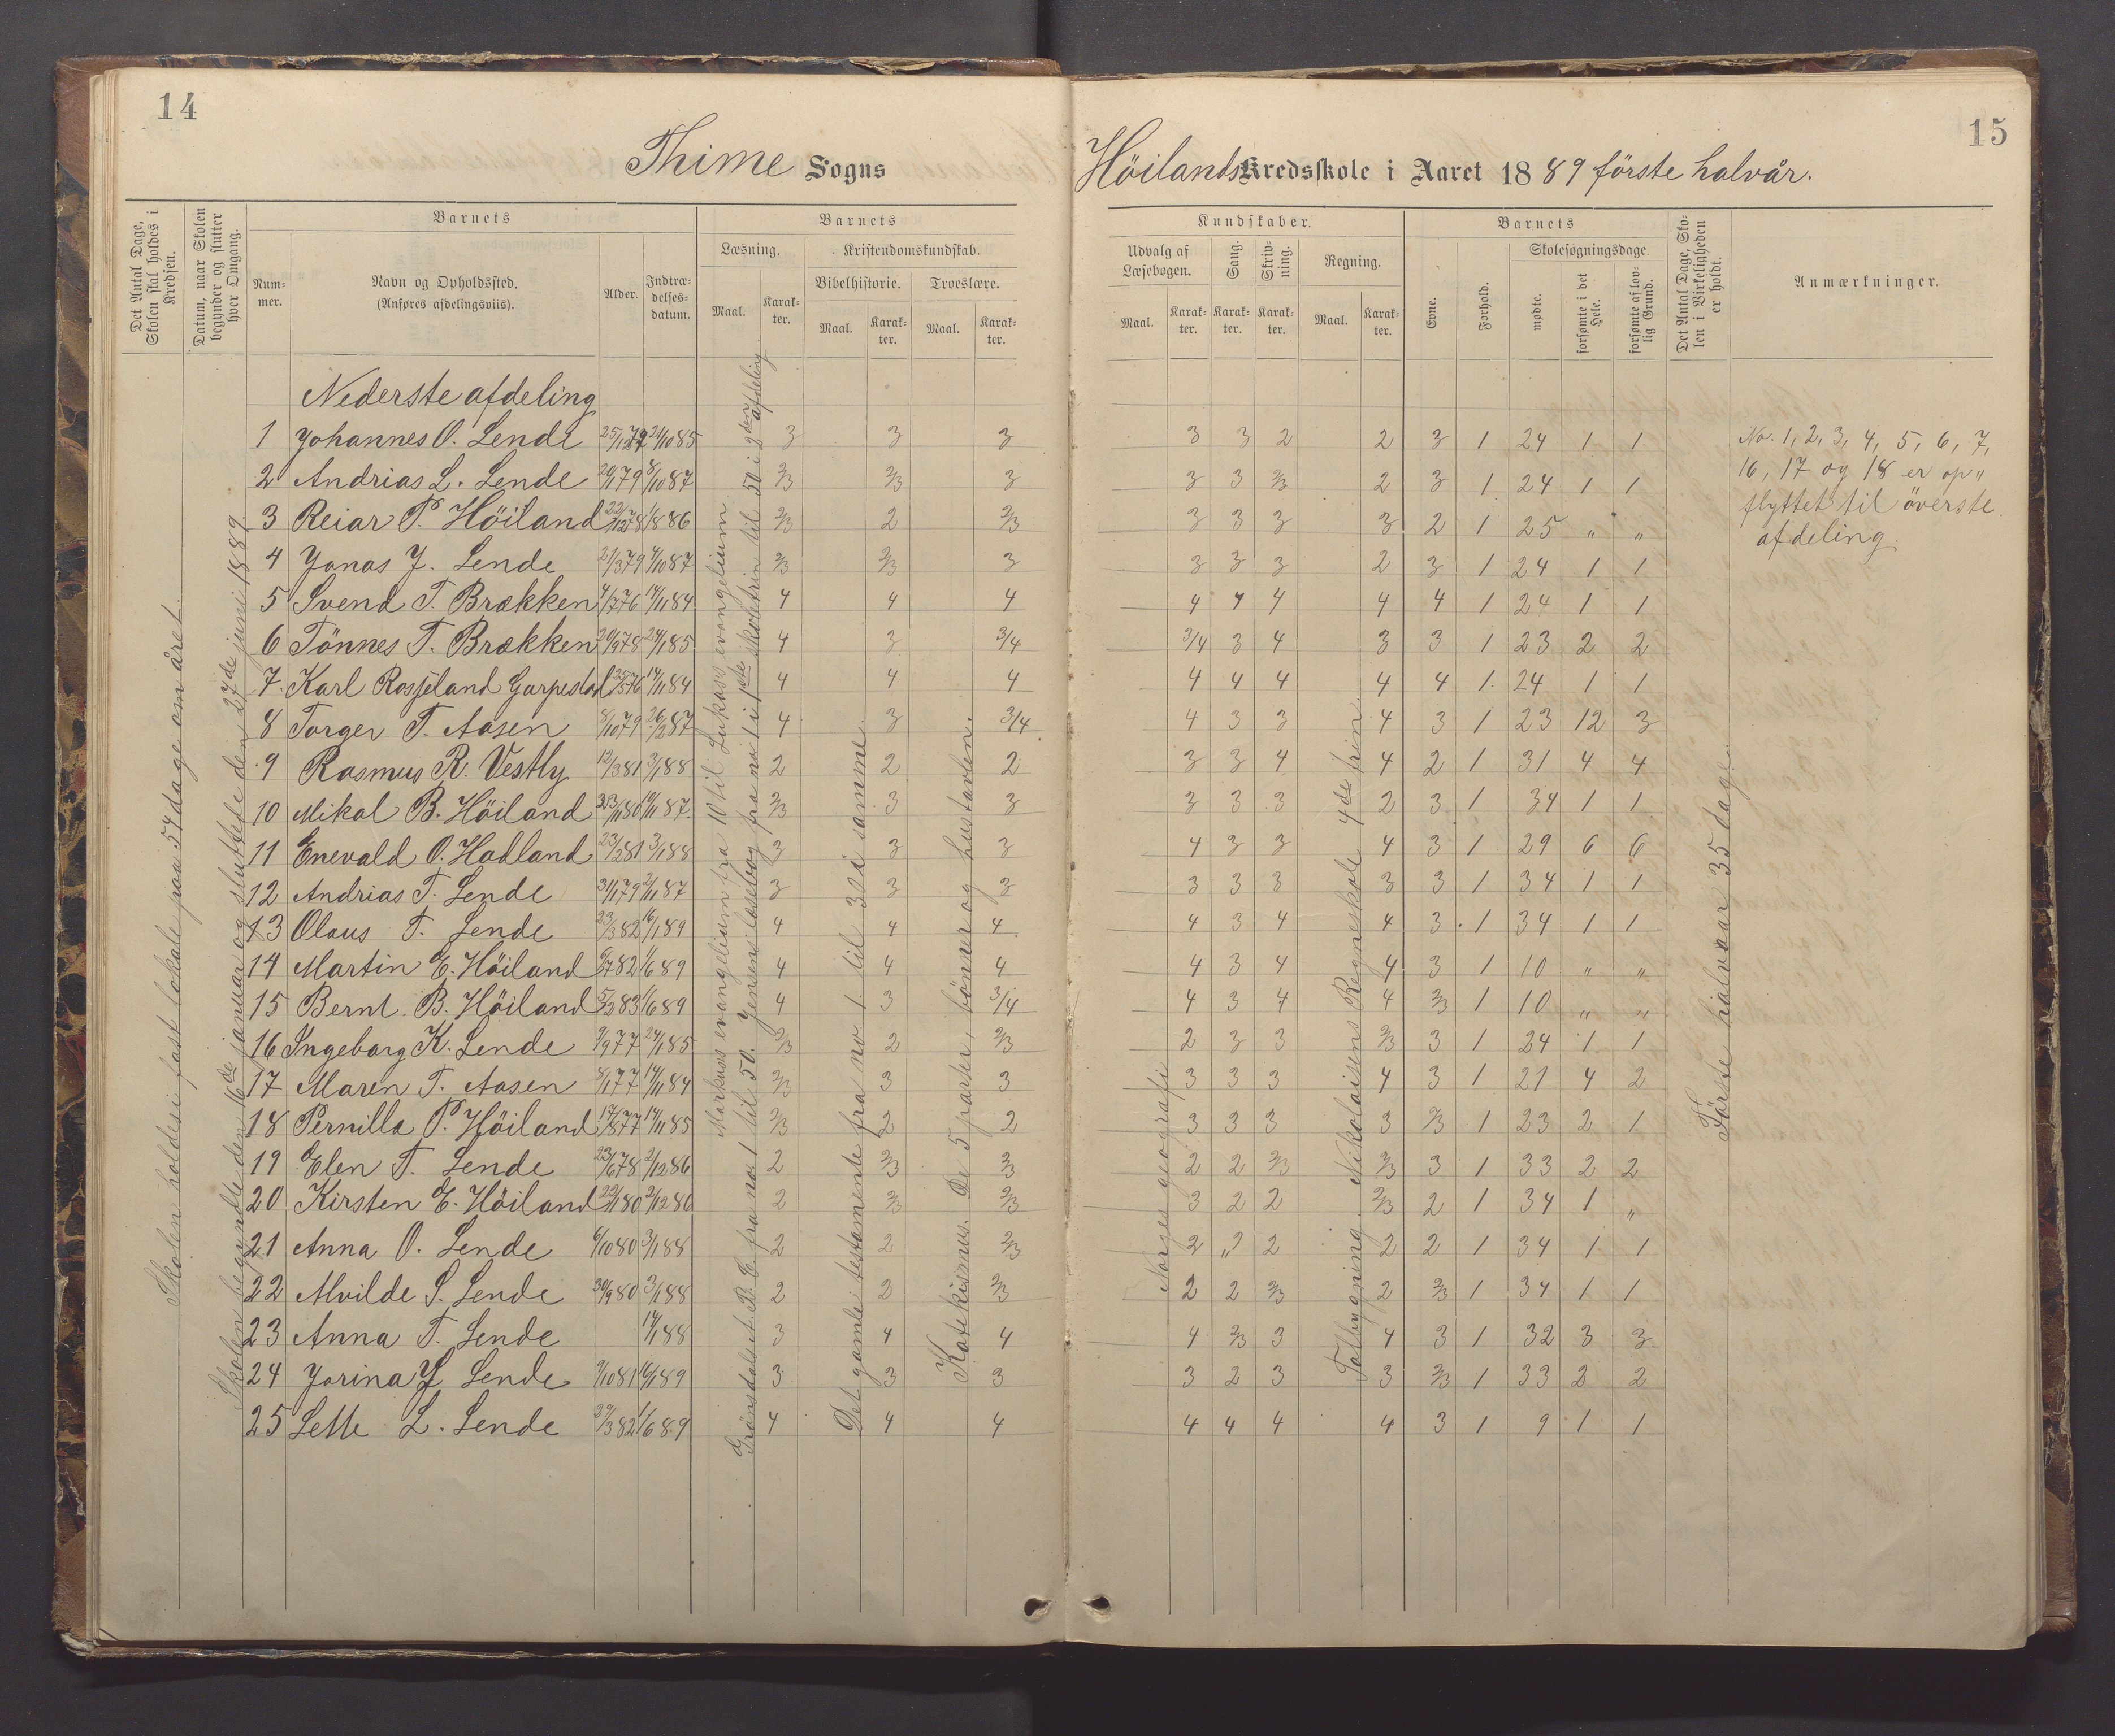 14
Thime Sogns
Det Antal Dage, Skolen skal holdes i Kredsen.
Datum, naar Skolen begynder og slutter hver Omgang.
Barnets
Nummer.
Navn og Opholdssted.
(Anføres afdelingsviis).
Alder.
Indtrædelsesdatum.
Barnets
Læsning.
Maal.
Karakter.
Kristendomskundskab.
Bibelhistorie.
Maal.
Karakter.
Troeslære.
Maal.
Karakter.
Skolen holdes i fast lokale paa 54 dage om året.
Skolen begyndte den 16de januar og sluttede den 27de juni 1889.
Markus's evangelium fra 10 til Lukas's evangelium
Gröndals A.B.C. fra no. 1 til 50. Jensens læsebog fra no 1 i 1ste skoletrin til 50 i 2den afdeling.
Det gamle testamente fra no 1 til 32 i samme.
Katekismus. De 5 parter, bönner og hustavlen.
Nederste afdeling
1 Johannes O. Lende 21/10 85 3 3 3
2 Andrias L. Lende 8/10 87 2/3 2/3 3
3 Reiar P. Höiland 1/8 86 2/3 2 2/3
4 Jonas J. Lende 21/3 79 4/10 87 2/3 2/3 3
5 Svend T. Brækken 4/7 76 14/11 84 4 4 4
6 Tönnes T. Brækken 20/9 78 24/1 85 4 3 3/4
7. Karl Rosseland Garpestad 14/11 84 4 4 4
8 Torger T. Aasen 8/10 79 26/2 87 4 3 3/4
9 Rasmus R. Vestly 12/3 81 3/1 88 2 2 2
10 Mikal B. Höiland 10/11 87. 2/3 3 3
11 Enevald O. Hadland 23/2 81 3/1 88 3 3 3
12 Andrias T. Lende 31/1 79 2/11 87 3 3 3
13 Olaus T. Lende 23/3 82 16/1 89 4 4 4
14 Martin E. Höiland 6/7 82 1/6 89 4 4 4
15 Bernt B. Höiland 5/2 83 1/6 89 4 3 3/4
16 Ingeborg K. Lende 9/9 77 24/1 85 2/3 2 2/3
17 Maren T. Aasen 8/1 77 14/11 84 2/3 3 3
18 Pernilla P. Höiland 17/8 77 14/11 85 2/3 2 2
19 Elen T. Lende 23/6 78 2/12 86 2 2/3 2/3
20 Kirsten E. Höiland 22/1 80 2/12 86 2 2/3 2/3
21 Anna O. Lende 6/10 80 3/1 88 2 2 2/3
22 Alvilde S. Lende 30/9 80 3/1 88 2 2 2/3
23 Anna T. Lende 14/1 88 3 4 4
24 Jorina J Lende 7/10 81 16/1 89 3 3 3
25 Sette L. Lende 29/3 82 1/6 89 4 4 4
15
Höilands Kredsskole i Aaret 1889 förste halvår.
Kundskaber.
Udvalg af Læsebogen.
Maal.
Karakter.
Sang.
Karakter.
Skrivning.
Karakter.
Regning.
Maal.
Karakter.
Barnets
Evne.
Forhold.
Skolesøgningsdage
mødte.
forsømte i det Hele.
forsømte af lovlig Grund.
Det Antal Dage, Skolen i Virkeligheden er holdt.
Anmærkninger.
Norges geografi
Talbygning. Nikolaisens Regneskole 4de trin
Förste halvaar 35 dage.
3 3 2 2 3 1 24 1 1
3 3 2/3 2 3 1 24 1 1
3 3 3 3 2 1 25 " "
3 3 3 2 3 1 24 1 1
4 4 4 4 4 1 24 1 1
3/4 3 4 3 3 1 23 2 2
4 4 4 4 4 1 24 1 1
4 3 3 4 3 1 23 12 3
3 3 4 4 2 1 31 4 4
3 3 3 2 3 1 34 1 1
4 3 3 4 3 1 29 6 6
3 3 3 3 3 1 34 1 1
4 3 4 4 3 1 34 1 1
4 3 4 4 3 1 10 " "
4 3 4 4 2/3 1 10 " "
2 3 3 2/3 3 1 24 1 1
3 3 3 4 3 1 21 4 2
3 3 3 3 2/3 1 23 2 1
2 2 2/3 2/3 3 1 33 2 2
3 2 2 2/3 2 1 34 1 "
2 "2 2 2 2 1 34 1 1
2 2 2/3 2 2/3 1 34 1 1
4 2/3 3 4 3 1 32 3 3
3 2 3 3 2/3 1 33 2 2
4 4 4 4 3 1 9 1 1
No. 1, 2, 3, 4, 5, 6, 7,
16, 17 og 18 er op"
flyttet til överste
afdeling.